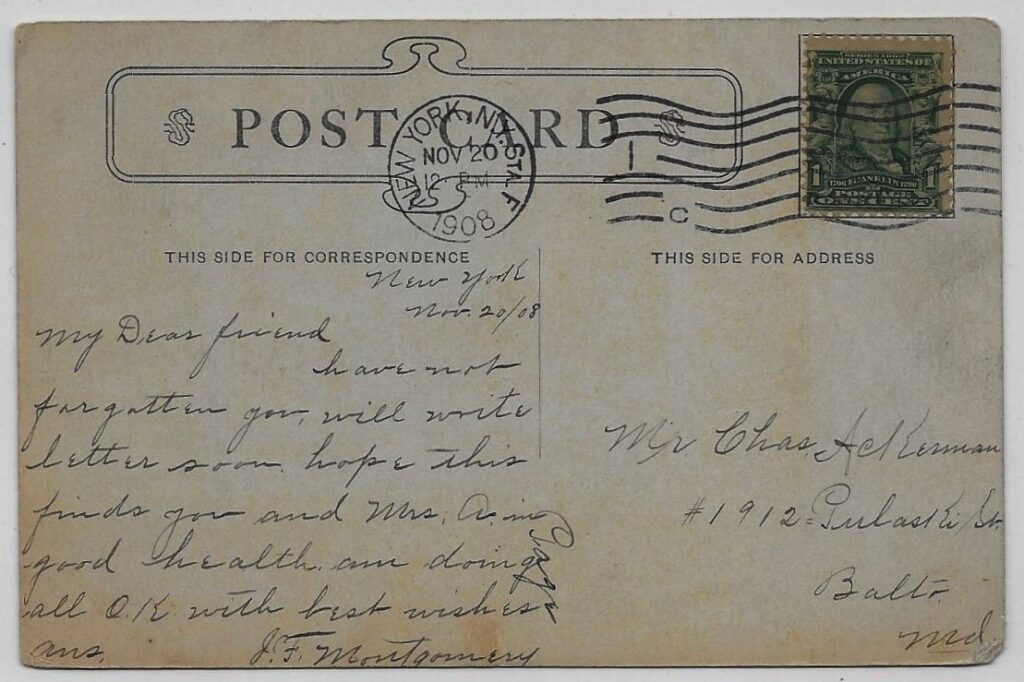 POST CARD
NEW YORK, N.Y. STA. F
NOV 20
12 PM
1908
C
SERIES 1902
UNITED STATES OF
AMERICA
1706 FRANKLIN 1790
1 1
POSTAGE
ONE CENT
THIS SIDE FOR CORRESPONDENCE
THIS SIDE FOR ADDRESS
New York
Nov. 20/08
My Dear friend
have not
forgotten you, will write
letter soon. hope this
finds you and Mrs. A. in
good health. am doing
all O.K. with best wishes
ans. J. F. Montgomery
Mr Chas. Ackerman
#1912 = Pulaski St.
Balto.
Md.